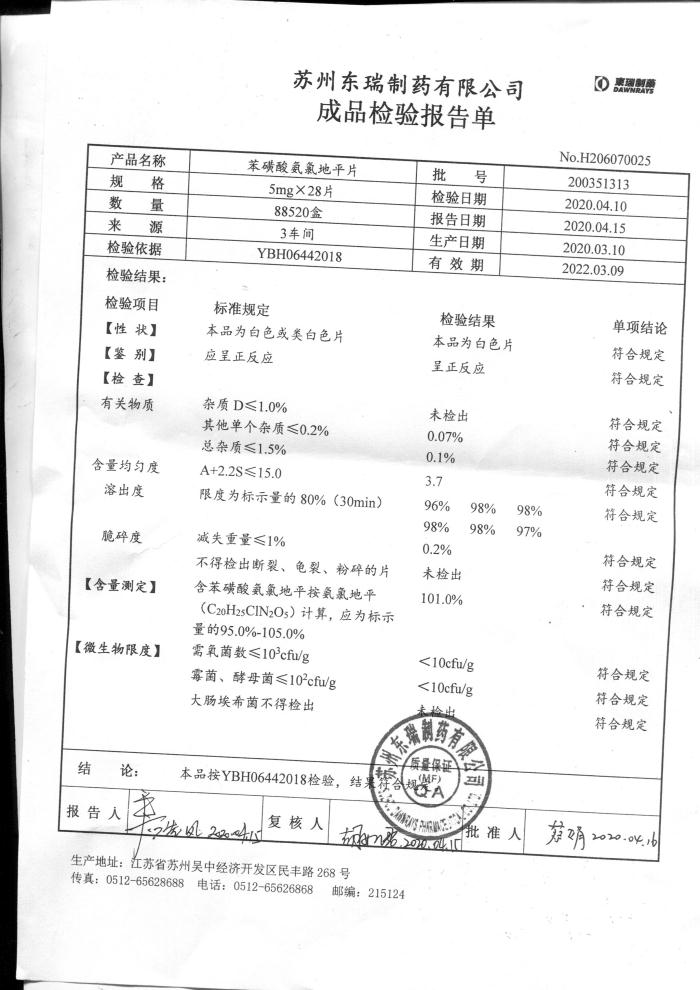 苏州东瑞制药有限公司
東瑞制藥
DAWNRAYS
成品检验报告单
No.H206070025
产品名称 苯磺酸氨氯地平片 批 号 200351313
规 格 5mg×28片 检验日期 2020.04.10
数 量 88520盒 报告日期 2020.04.15
来 源 3车间 生产日期 2020.03.10
检验依据 YBH06442018 有 效 期 2022.03.09
检验结果：
检验项目 标准规定 检验结果 单项结论
【性 状】 本品为白色或类白色片 本品为白色片 符合规定
【鉴 别】 应呈正反应 呈正反应 符合规定
【检 查】
有关物质 杂质 D≤1.0% 未检出 符合规定
其他单个杂质≤0.2% 0.07% 符合规定
总杂质≤1.5% 0.1% 符合规定
含量均匀度 A+2.2S≤15.0 3.7 符合规定
溶出度 限度为标示量的 80%（30min） 96% 98% 98% 符合规定
98% 98% 97%
脆碎度 减失重量≤1% 0.2% 符合规定
不得检出断裂、龟裂、粉碎的片 未检出 符合规定
【含量测定】 含苯磺酸氨氯地平按氨氯地平 101.0% 符合规定
（C20H25ClN2O5）计算，应为标示
量的95.0%-105.0%
【微生物限度】 需氧菌数≤10³cfu/g ＜10cfu/g 符合规定
霉菌、酵母菌≤10²cfu/g ＜10cfu/g 符合规定
大肠埃希菌不得检出 未检出 符合规定
苏州东瑞制药有限公司
质量保证
(MF)
QA
结 论： 本品按YBH06442018检验，结果符合规定
报 告 人 2020.04.15 复 核 人 2020.04.15 批 准 人 2020.04.16
生产地址：江苏省苏州吴中经济开发区民丰路 268 号
传真：0512-65628688 电话：0512-65626868 邮编：215124